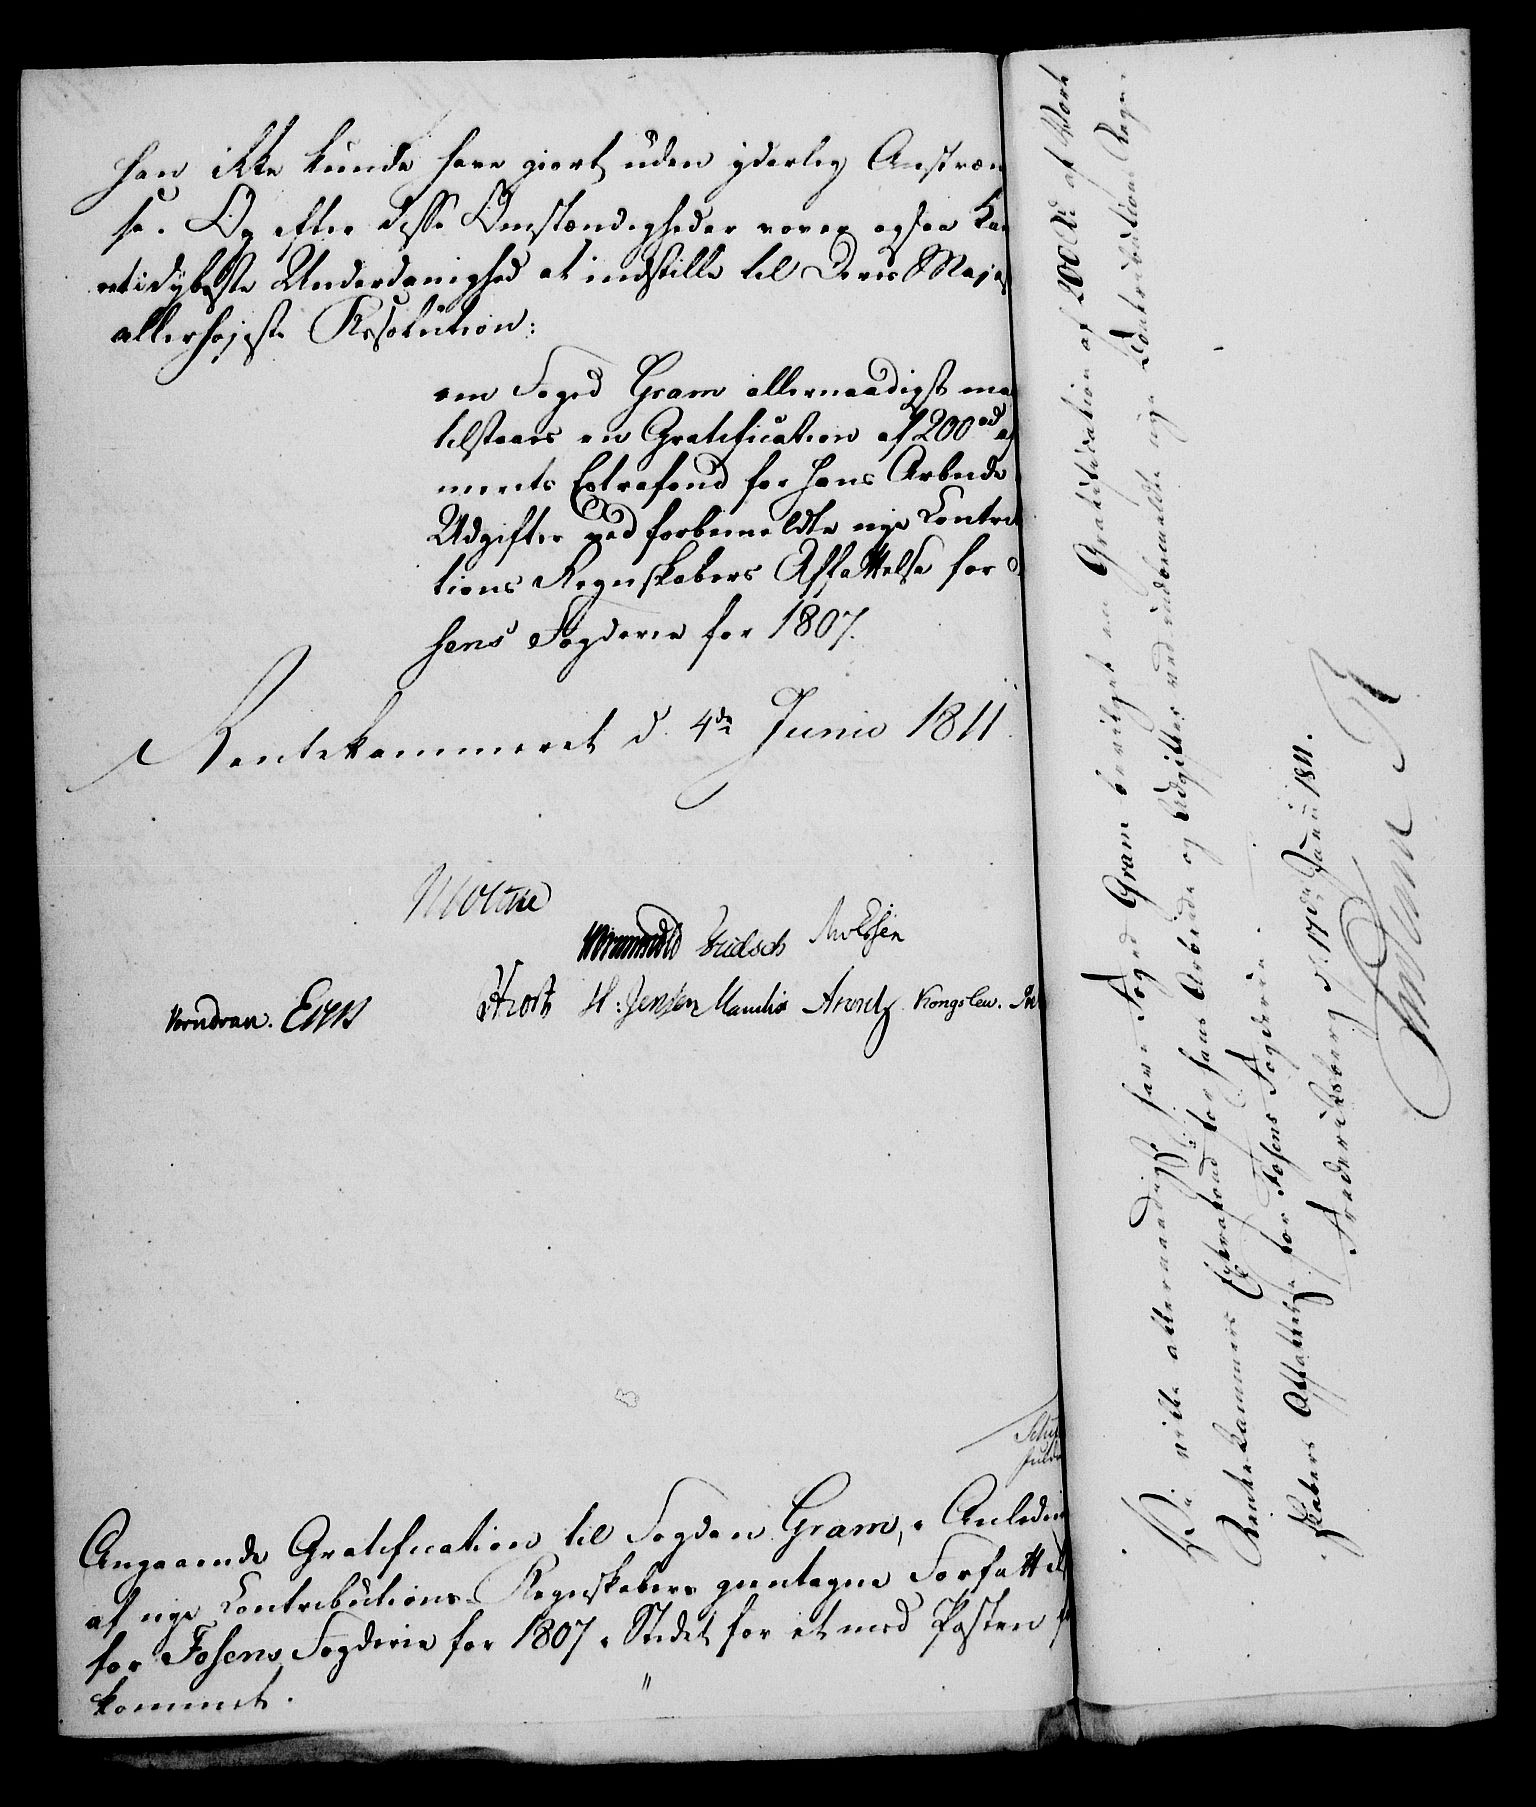 han ikke kunde have giort uden yderlig Anstræn
se. Og efter disse Omstændigheder vover ogsaa Kam
ret i dybeste Underdanighed at indstille til Deres Maje
allerhøjeste Resolution:
om Foged Gram allernaadigst maa
tilstaaes en Gratification af 200 rd af
merets Extrafond for hans Arbeide
Udgifter ved forbemeldte nye Contri
tions Regnskabers Affattelse for
sens Fogderie for 1807.
Rentekammeret d. 4de Junii 1811.
Moltke
Wormskiold
Knudsen. Eyer H: Jensen Manthey Arentz Kongslew.
Angaaende Gratification til Fogden Gram, i Anledni
af nye Contributions-Regnskabers gientagne Forfatt
for Fosens Fogderie for 1807 i Stedet for et med Posten
kommet.
Vi ville allernaadigst have Foged Gram bevilget en Gratification af 200 Rd. af Vort
Rentekammers Extrafond for hans Arbeide og Udgifter ved indbemeldte nye Contributions Regn-
skabers Affattelse for Fosens Fogderie.
Frederiksberg d. 17de Junii 1811.
Frederik R